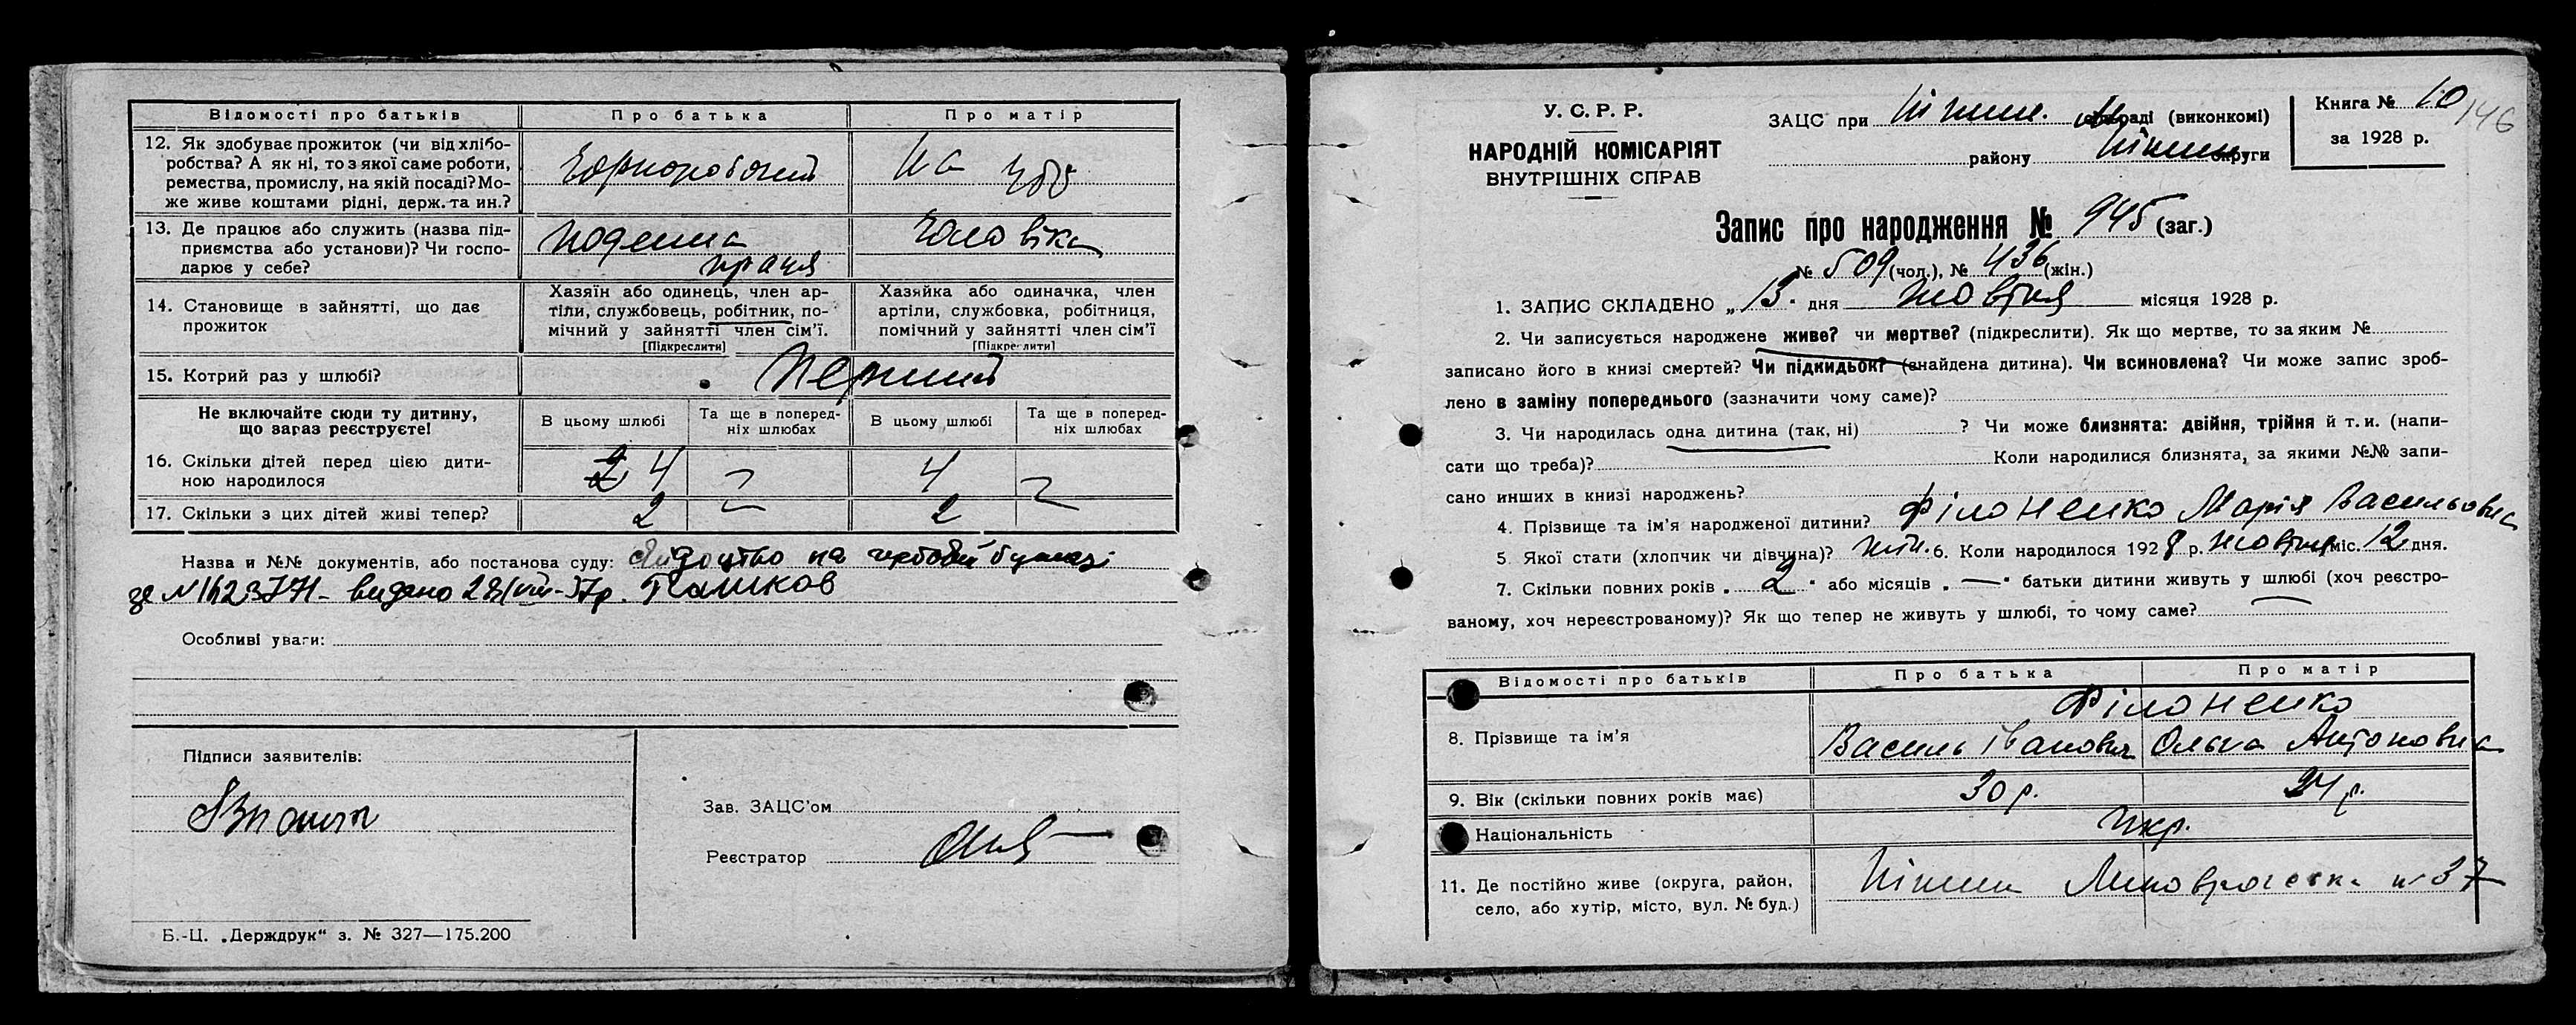 Відомості про батьків Про батька Про матір
12. Як здобуває прожиток (чи від хлібо-
робства? А як ні, то з якої саме роботи,
ремества, промислу, на якій посаді? Мо-
же живе коштами рідні, держ. та ин.?
Чорноробочий На
13. Де працює або служить (назва під-
приємства або установи)? Чи госпо-
дарює у себе?
поденна праця чоловіка
14. Становище в зайнятті, що дає
прожиток
Хазяїн або одинець, член ар-
тіли, службовець, робітник, по-
мічний у зайнятті член сім'ї.
[Підкреслити]
Хазяйка або одиначка, член
артіли, службовка, робітниця,
помічний у зайнятті член сім'ї
[Підкреслити]
15. Котрий раз у шлюбі? Перший
Не включайте сюди ту дитину,
що зараз реєструєте!
В цьому шлюбі
Та ще в поперед-
ніх шлюбах
В цьому шлюбі
Та ще в поперед-
ніх шлюбах
16. Скільки дітей перед цією дити-
ною народилося
2 4 4
17. Скільки з цих дітей живі тепер? 2 2
Назва и №№ документів, або постанова суду: свідоцтво на гербовій бумазі
за № видано Пашков
Особливі уваги:
Підписи заявителів:
Зав. ЗАЦС'ом
Реєстратор
Б.-Ц. „Держдрук“ з. № 327—175.200
У. С. Р. Р.
НАРОДНІЙ КОМІСАРІЯТ
ВНУТРІШНІХ СПРАВ
ЗАЦС при Ніжин. (виконкомі)
району Ніжин округи
Книга № 10
за 1928 р.
146
Запис про народження № 945 (заг.)
№ 509 (чол.), № 436 (жін.)
1. ЗАПИС СКЛАДЕНО „13“ дня жовтня місяця 1928 р.
2. Чи записується народжене живе? чи мертве? (підкреслити). Як що мертве, то за яким №
записано його в книзі смертей? Чи підкидьок? (знайдена дитина). Чи всиновлена? Чи може запис зроб-
лено в заміну попереднього (зазначити чому саме)?
3. Чи народилась одна дитина (так, ні) ? Чи може близнята: двійня, трійня й т. и. (напи-
сати що треба)? Коли народилися близнята, за якими №№ запи-
сано инших в книзі народжень?
4. Прізвище та ім'я народженої дитини? Філоненко Марія Васильовна
5. Якої стати (хлопчик чи дівчина)? жін. 6. Коли народилося 1928 р. жовтня міс. 12 дня.
7. Скільки повних років „ 2 “ або місяців „ — “ батьки дитини живуть у шлюбі (хоч реєстро-
ваному, хоч нереєстрованому)? Як що тепер не живуть у шлюбі, то чому саме?
Відомості про батьків Про батька Про матір
Філоненко
8. Прізвище та ім'я Василь Іванович Ольга Антоновна
9. Вік (скільки повних років має) 30 р. 24 р.
Національність Укр.
11. Де постійно живе (округа, район,
село, або хутір, місто, вул. № буд.)
Ніжин № 37